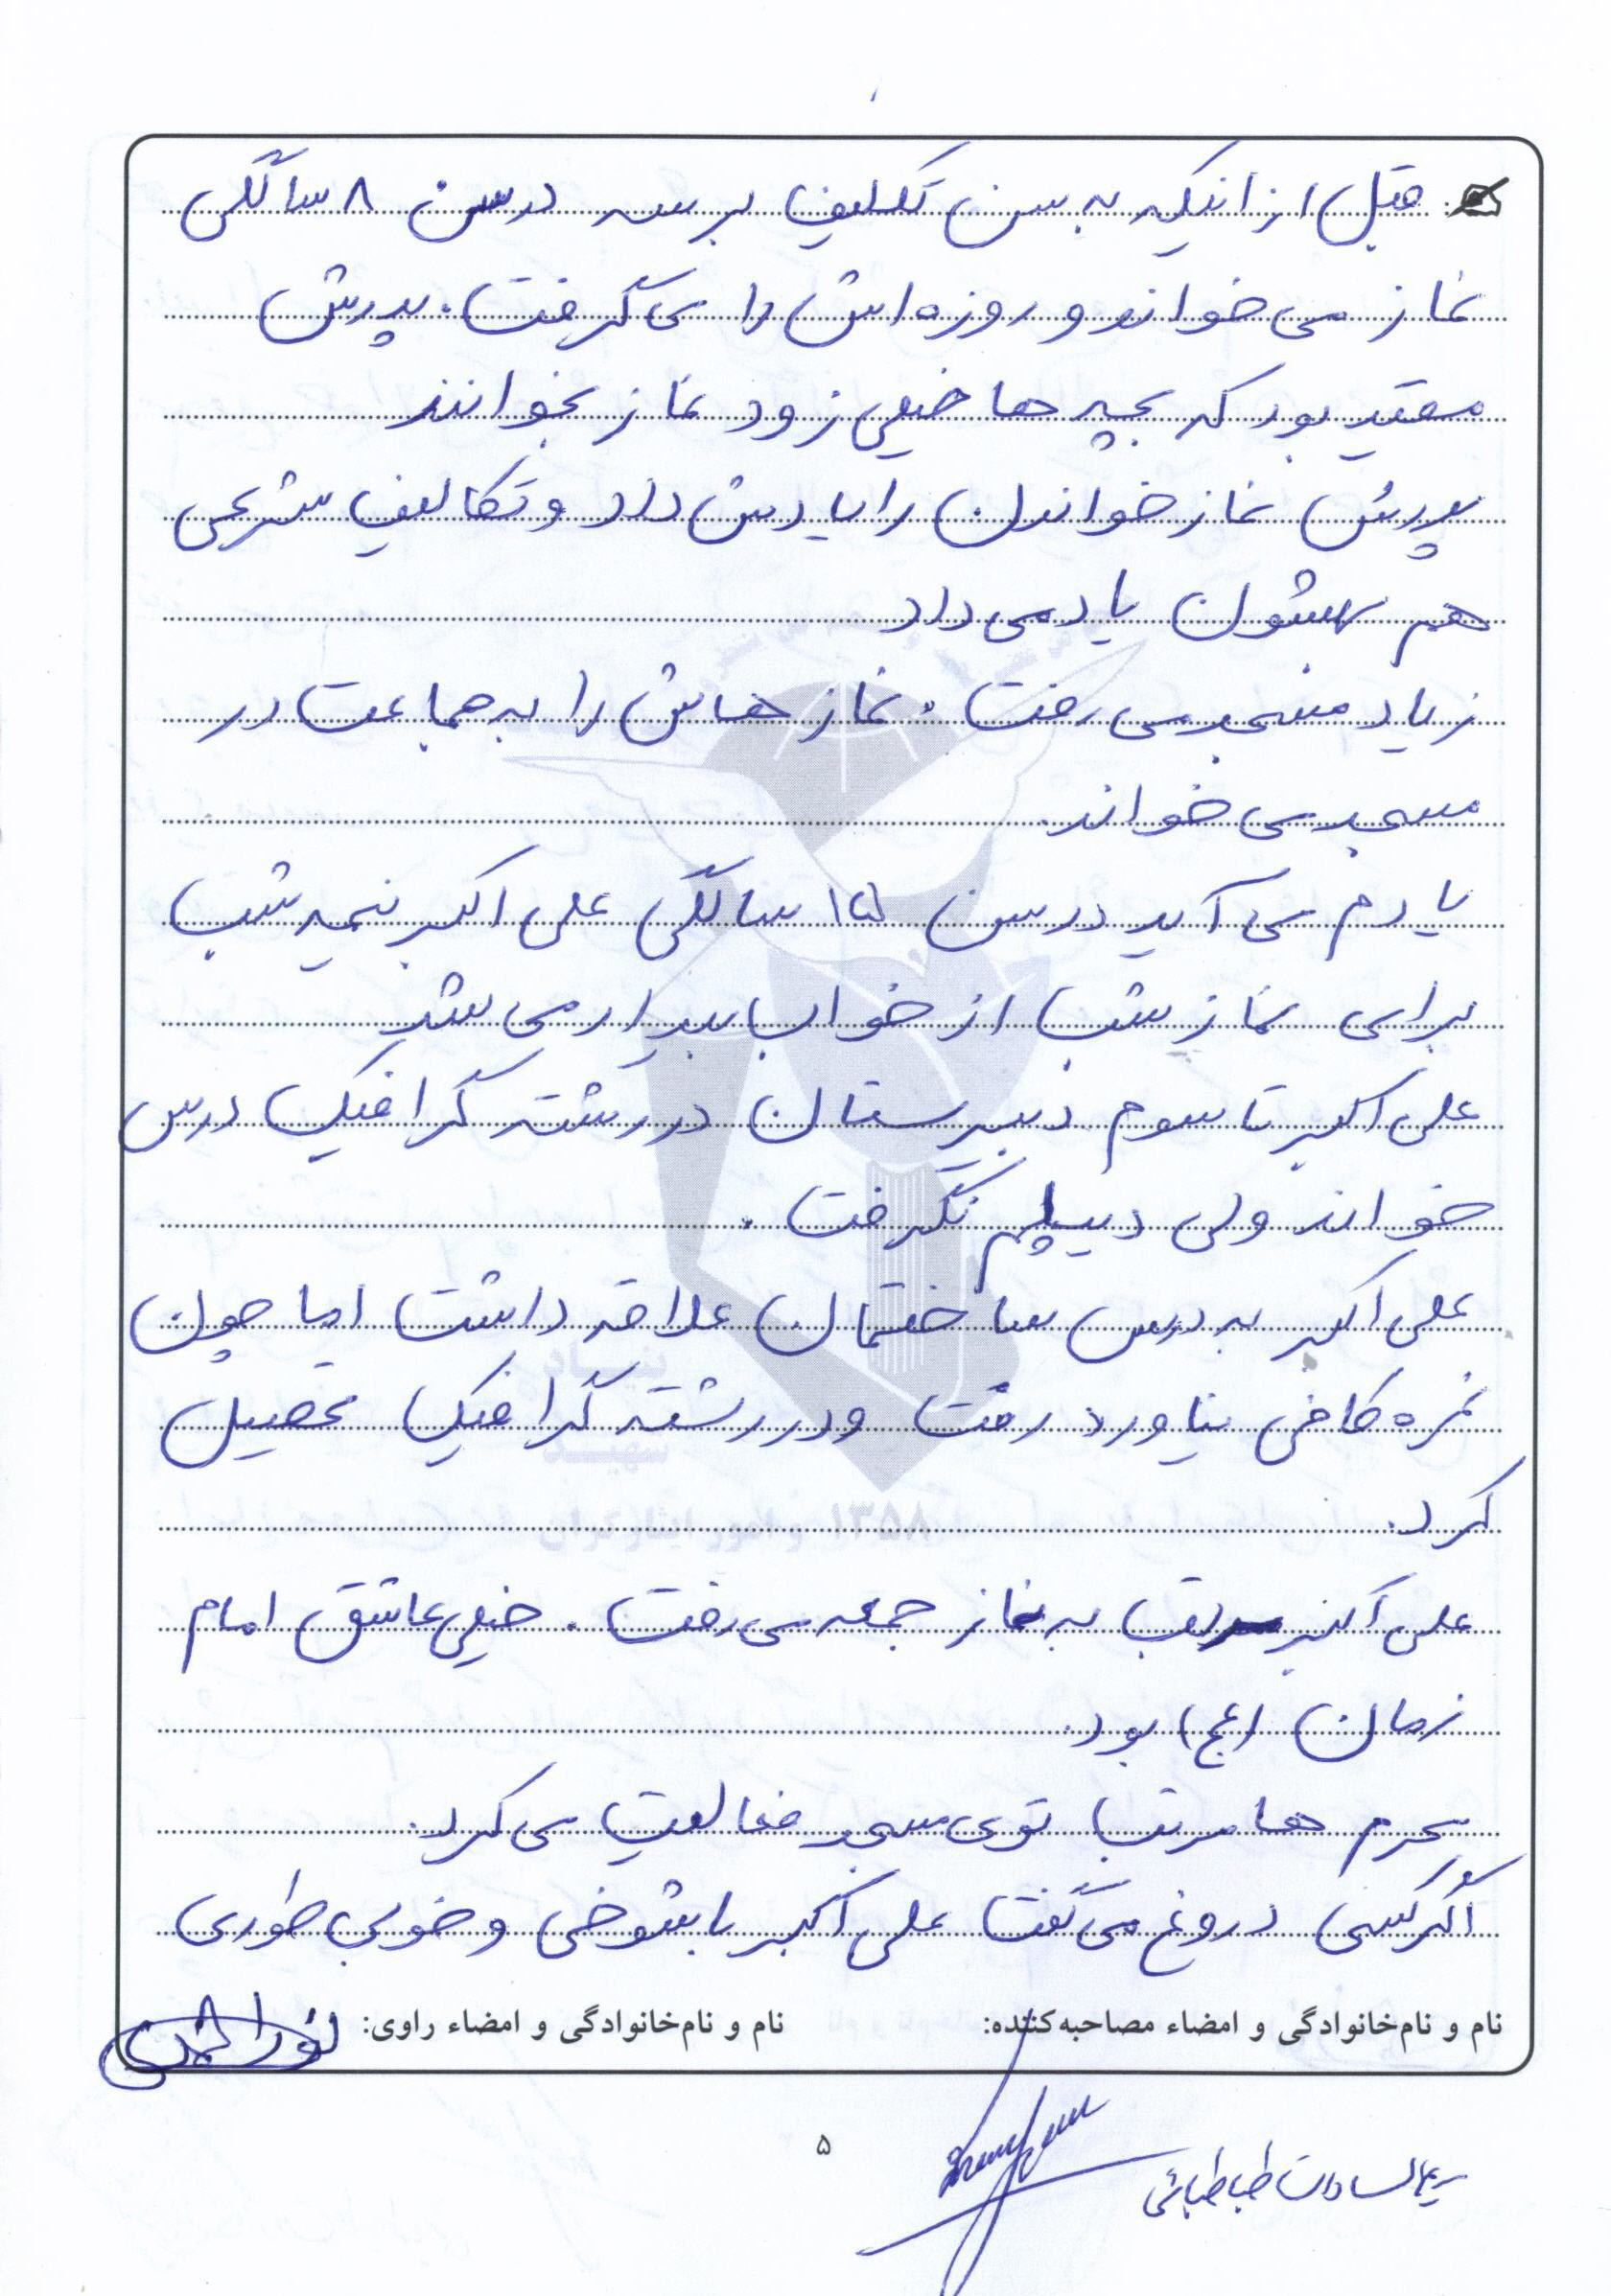 قبل از اینکه به سن تکلیف برسه درسن ۸ سالگی
نماز می خواند و روزه اش را می گرفت. پدرش
مقید بود که بچه ها خیلی زود نماز بخوانند
پدرش نماز خواندن را یادش داد و تکالیف شرعی
هم بهشون یاد می داد
زیاد مسجد می رفت. نماز هاش را به جماعت در
مسجد می خواند.
یادم می آید درسن ۱۵ سالگی علی اکبر نیمه شب
برای نماز شب از خواب بیدار می شد
علی اکبر تا سوم دبیرستان در رشته گرافیک درس
خواند ولی دیپلم نگرفت.
علی اکبر به درس ساختمان علاقه داشت اما چون
نمره کافی نیاورد رفت و در رشته گرافیک تحصیل
کرد.
علی اکبر مرتب به نماز جمعه می رفت. خیلی عاشق امام
زمان (عج) بود.
محرم ها مرتب توی مسجد فعالیت می کرد.
اگر کسی دروغ می گفت علی اکبر با شوخی و خوبی طوری
نام و نام‌خانوادگی و امضاء مصاحبه‌کننده: نام و نام‌خانوادگی و امضاء راوی:
۵
السادات طباطبائی
بنیاد
شهید
۱۳۵۸ و امور ایثارگران